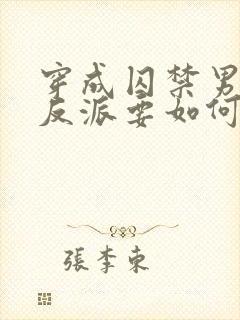 穿成囚禁男
反派要如何
張李東